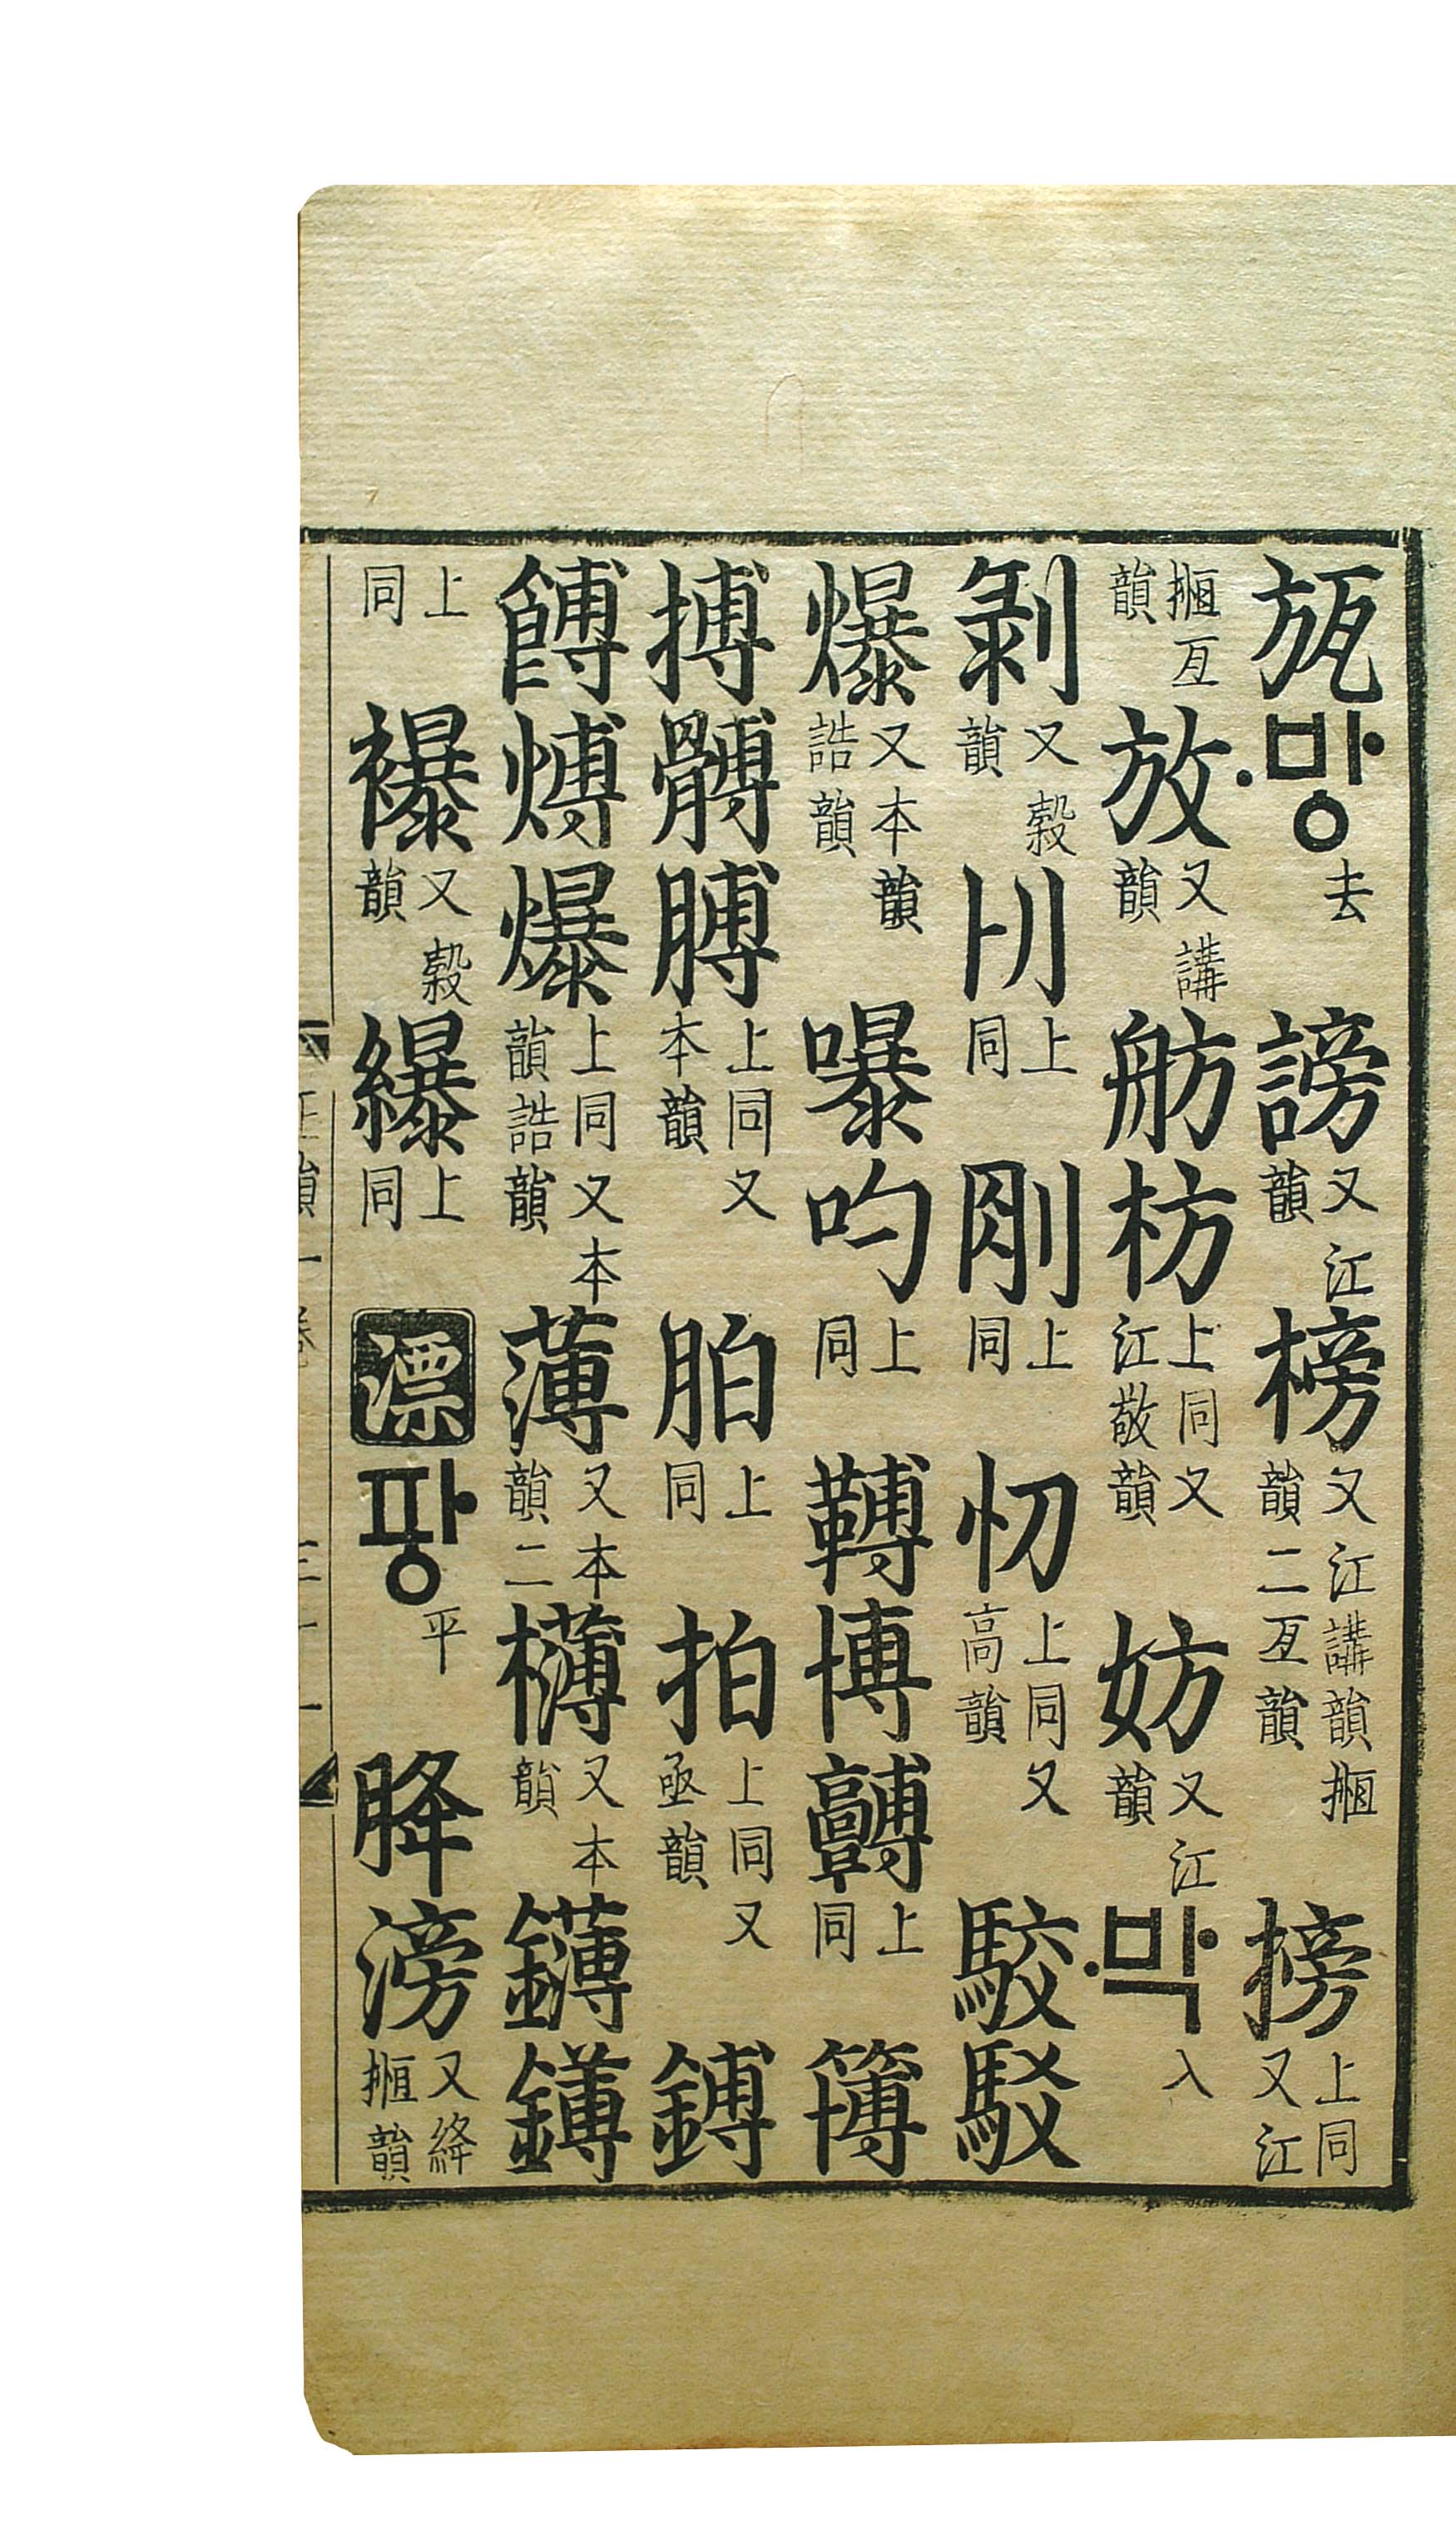 瓬·방去謗又江韻榜又江講韻揯二亙韻搒上同又江
揯亙韻放又講韻舫枋上同又江敬韻妨又江韻·박入
剝又穀韻刂上同上同上同又高韻駮駁
爆又本韻誥韻嚗上同博上同簙
搏髆膊上同又本韻胉上同拍上同又亟韻鎛
餺煿爆上同又本韻誥韻薄又本韻二欂又本韻鑮
上同襮又穀韻上同漂팡平胮滂又絳揯韻